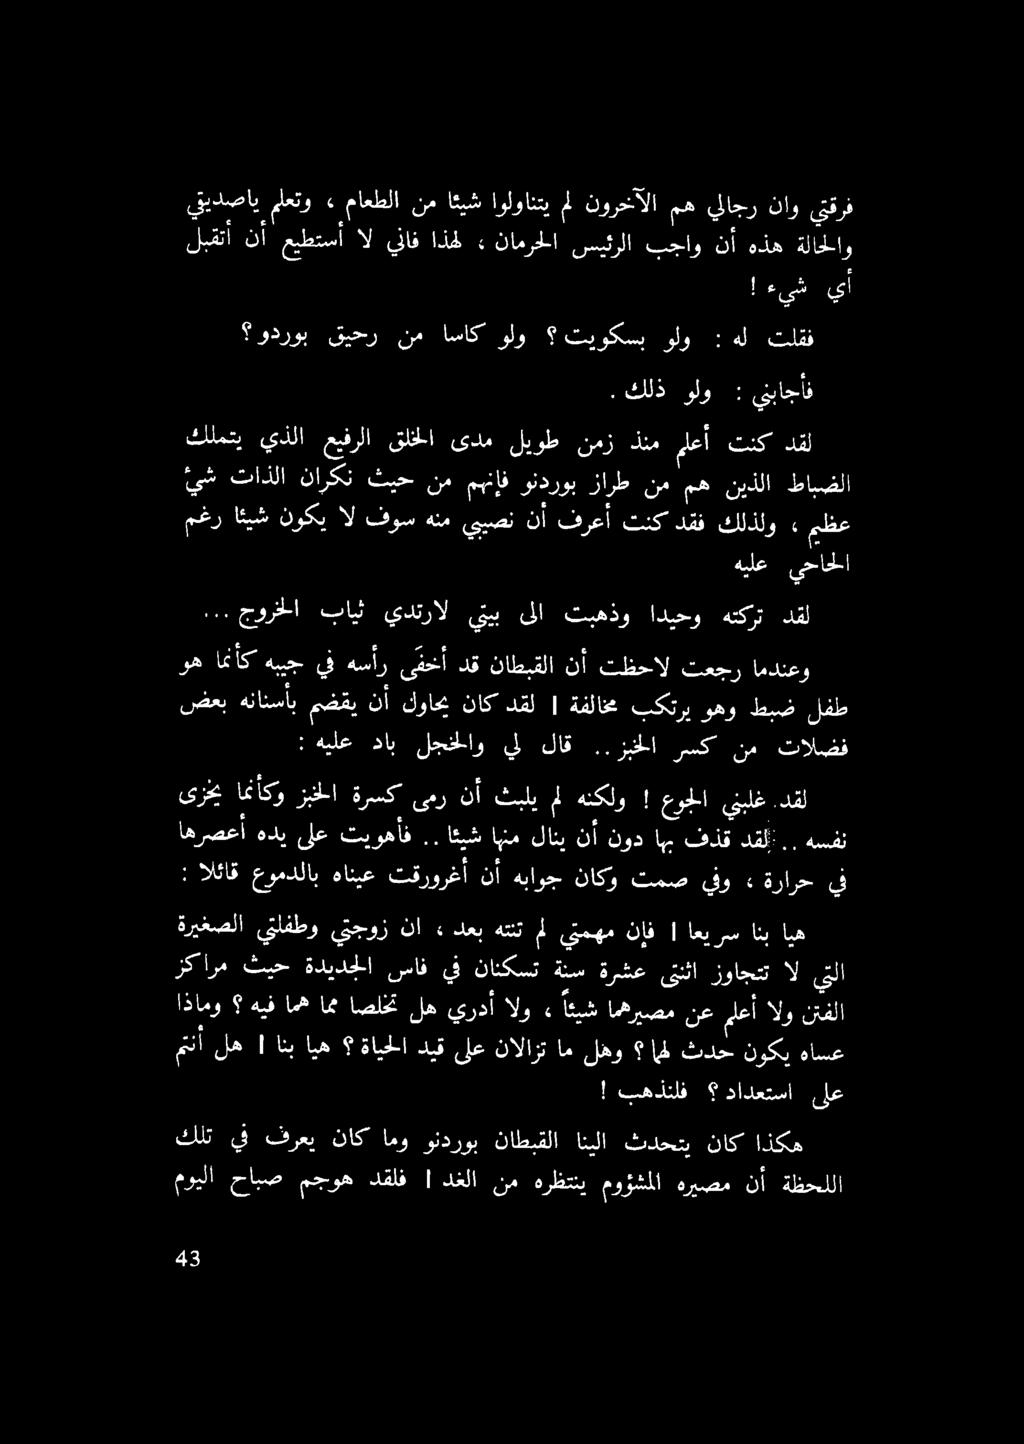 فرقتي وان رجالي هم الآخرون لم يتناولوا شيئا من الطعام ، وتعلم ياصديقي
والحالة هذه أن واجب الرئيس الحرمان ، لهذا فاني لا أستطيع أن أتقبل
أي شيء !
فقلت له : ولو بسكويت ؟ ولو كاسا من رحيق بوردو ؟
فأجابني : ولو ذلك .
لقد كنت أعلم منذ زمن طويل مدى الخلق الرفيع الذي يتملك
الضباط الذين هم من طراز بوردنو فإنهم من حيث نكران الذات شيئ
عظيم ، ولذلك فقد كنت أعرف أن نصيبي منه سوف لا يكون شيئا رغم
الحاحي عليه
لقد تركته وحيدا وذهبت الى بيتي لارتدي ثياب الخروج ...
وعندما رجعت لاحظت أن القبطان قد أخفى رأسه في جيبه كأنما هو
طفل ضبط وهو يرتكب مخالفة ! لقد كان يحاول أن يقضم بأسنانه بعض
فضلات من كسر الخبز .. قال لي والخجل باد عليه :
لقد غلبني الجوع ! ولكنه لم يلبث أن رمى كسرة الخبز وكأنما يخزى
نفسه .. لقد قذف بها دون أن ينال منها شيئا .. فأهويت على يده أعصرها
في حرارة ، وفي صمت وكان جوابه أن أغرورقت عيناه بالدموع قائلا :
هيا بنا سريعا ! فإن مهمتي لم تنته بعد ، ان زوجتي وطفلتي الصغيرة
التي لا تتجاوز اثنتى عشرة سنة تسكنان في فاس الجديدة حيث مراكز
الفتن ولا أعلم عن مصيرهما شيئاً ، ولا أدري هل تخلصا مما هما فيه ؟ وماذا
عساه يكون حدث لها ؟ وهل ما تزالان على قيد الحياة ؟ هيا بنا ! هل أنتم
على استعداد ؟ فلنذهب !
هكذا كان يتحدث الينا القبطان بوردنو وما كان يعرف في تلك
اللحظة أن مصيره المشؤوم ينتظره من الغد ! فلقد هوجم صباح اليوم
43